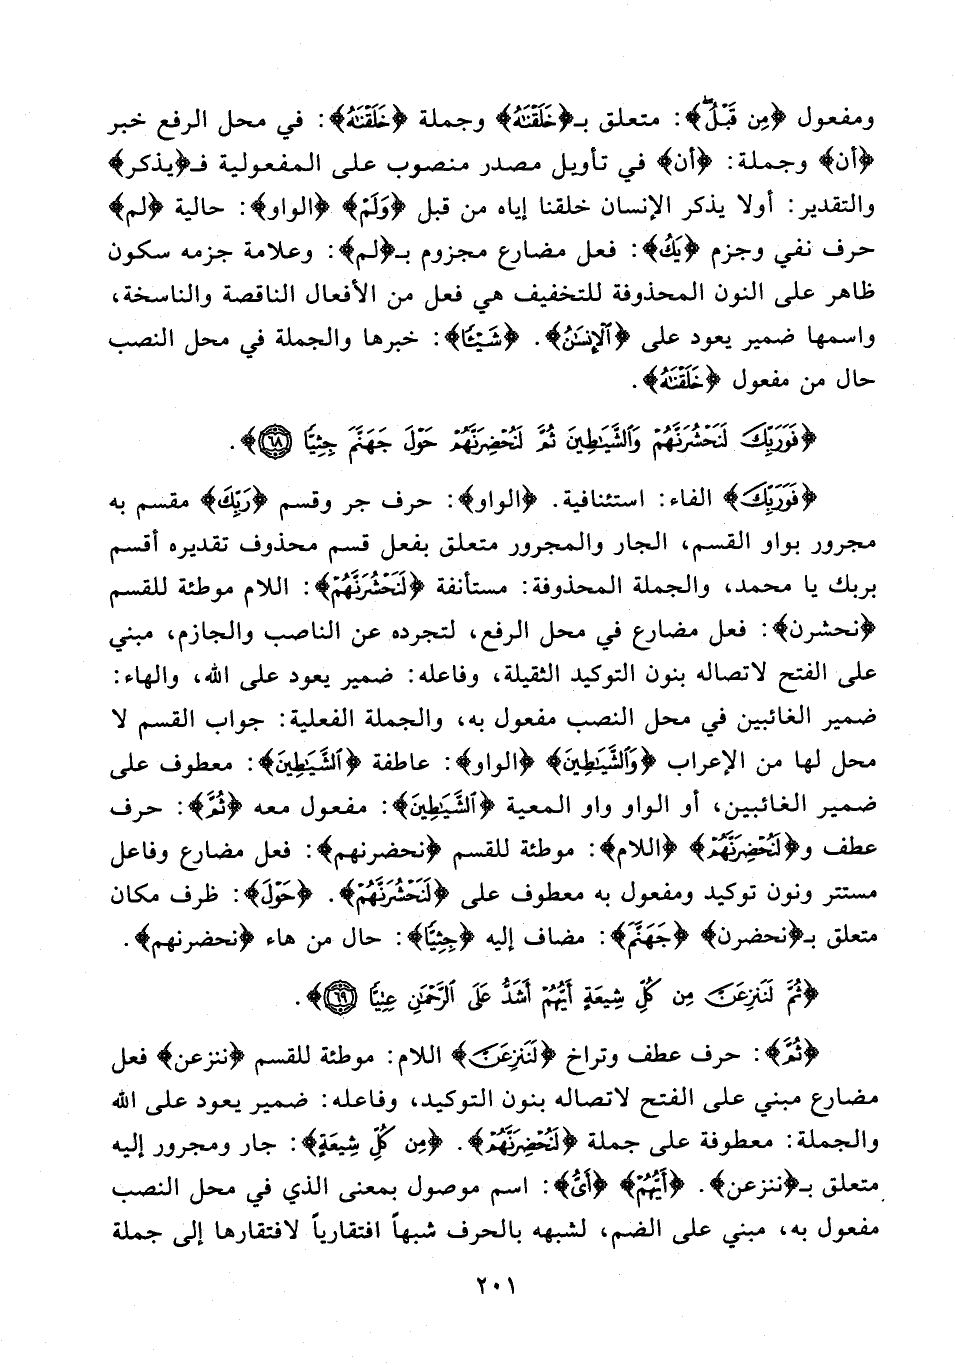 ومفعول ﴿مِن قَبْلُ﴾: متعلق بـ﴿خَلَقْنَهُ﴾ وجملة ﴿خَلَقْنَهُ﴾: في محل الرفع خبر
﴿أن﴾ وجملة: ﴿أن﴾ في تأويل مصدر منصوب على المفعولية فـ﴿يذكر﴾
والتقدير: أولا يذكر الإنسان خلقنا إياه من قبل ﴿وَلَمْ﴾ ﴿الواو﴾: حالية ﴿لم﴾
حرف نفي وجزم ﴿يَكُ﴾: فعل مضارع مجزوم بـ﴿لم﴾: وعلامة جزمه سكون
ظاهر على النون المحذوفة للتخفيف هي فعل من الأفعال الناقصة والناسخة،
واسمها ضمير يعود على ﴿ٱلْإِنسَٰنُ﴾. ﴿شَيْـًٔا﴾: خبرها والجملة في محل النصب
حال من مفعول ﴿خَلَقْنَٰهُ﴾.
﴿فَوَرَبِّكَ لَنَحْشُرَنَّهُمْ وَٱلشَّيَٰطِينَ ثُمَّ لَنُحْضِرَنَّهُمْ حَوْلَ جَهَنَّمَ جِثِيًّا ٦٨﴾.
﴿فَوَرَبِّكَ﴾ الفاء: استئنافية. ﴿الواو﴾: حرف جر وقسم ﴿رَبِّكَ﴾ مقسم به
مجرور بواو القسم، الجار والمجرور متعلق بفعل قسم محذوف تقديره أقسم
بربك يا محمد، والجملة المحذوفة: مستأنفة ﴿لَنَحْشُرَنَّهُمْ﴾: اللام موطئة للقسم
﴿نحشرن﴾: فعل مضارع في محل الرفع، لتجرده عن الناصب والجازم، مبني
على الفتح لاتصاله بنون التوكيد الثقيلة، وفاعله: ضمير يعود على الله، والهاء:
ضمير الغائبين في محل النصب مفعول به، والجملة الفعلية: جواب القسم لا
محل لها من الإعراب ﴿وَٱلشَّيَٰطِينَ﴾ ﴿الواو﴾: عاطفة ﴿ٱلشَّيَٰطِينَ﴾: معطوف على
ضمير الغائبين، أو الواو واو المعية ﴿ٱلشَّيَٰطِينَ﴾: مفعول معه ﴿ثُمَّ﴾: حرف
عطف و﴿لَنُحْضِرَنَّهُمْ﴾ ﴿اللام﴾: موطئة للقسم ﴿نحضرنهم﴾: فعل مضارع وفاعل
مستتر ونون توكيد ومفعول به معطوف على ﴿لَنَحْشُرَنَّهُمْ﴾. ﴿حَوْلَ﴾: ظرف مكان
متعلق بـ﴿نحضرن﴾ ﴿جَهَنَّمَ﴾: مضاف إليه ﴿جِثِيًّا﴾: حال من هاء ﴿نحضرنهم﴾.
﴿ثُمَّ لَنَنزِعَنَّ مِن كُلِّ شِيعَةٍ أَيُّهُمْ أَشَدُّ عَلَى ٱلرَّحْمَٰنِ عِتِيًّا ٦٩﴾.
﴿ثُمَّ﴾: حرف عطف وتراخ ﴿لَنَنزِعَنَّ﴾ اللام: موطئة للقسم ﴿ننزعن﴾ فعل
مضارع مبني على الفتح لاتصاله بنون التوكيد، وفاعله: ضمير يعود على الله
والجملة: معطوفة على جملة ﴿لَنُحْضِرَنَّهُمْ﴾. ﴿مِن كُلِّ شِيعَةٍ﴾: جار ومجرور إليه
متعلق بـ﴿ننزعن﴾. ﴿أَيُّهُمْ﴾ ﴿أَيُّ﴾: اسم موصول بمعنى الذي في محل النصب
مفعول به، مبني على الضم، لشبهه بالحرف شبهاً افتقارياً لافتقارها إلى جملة
٢٠١